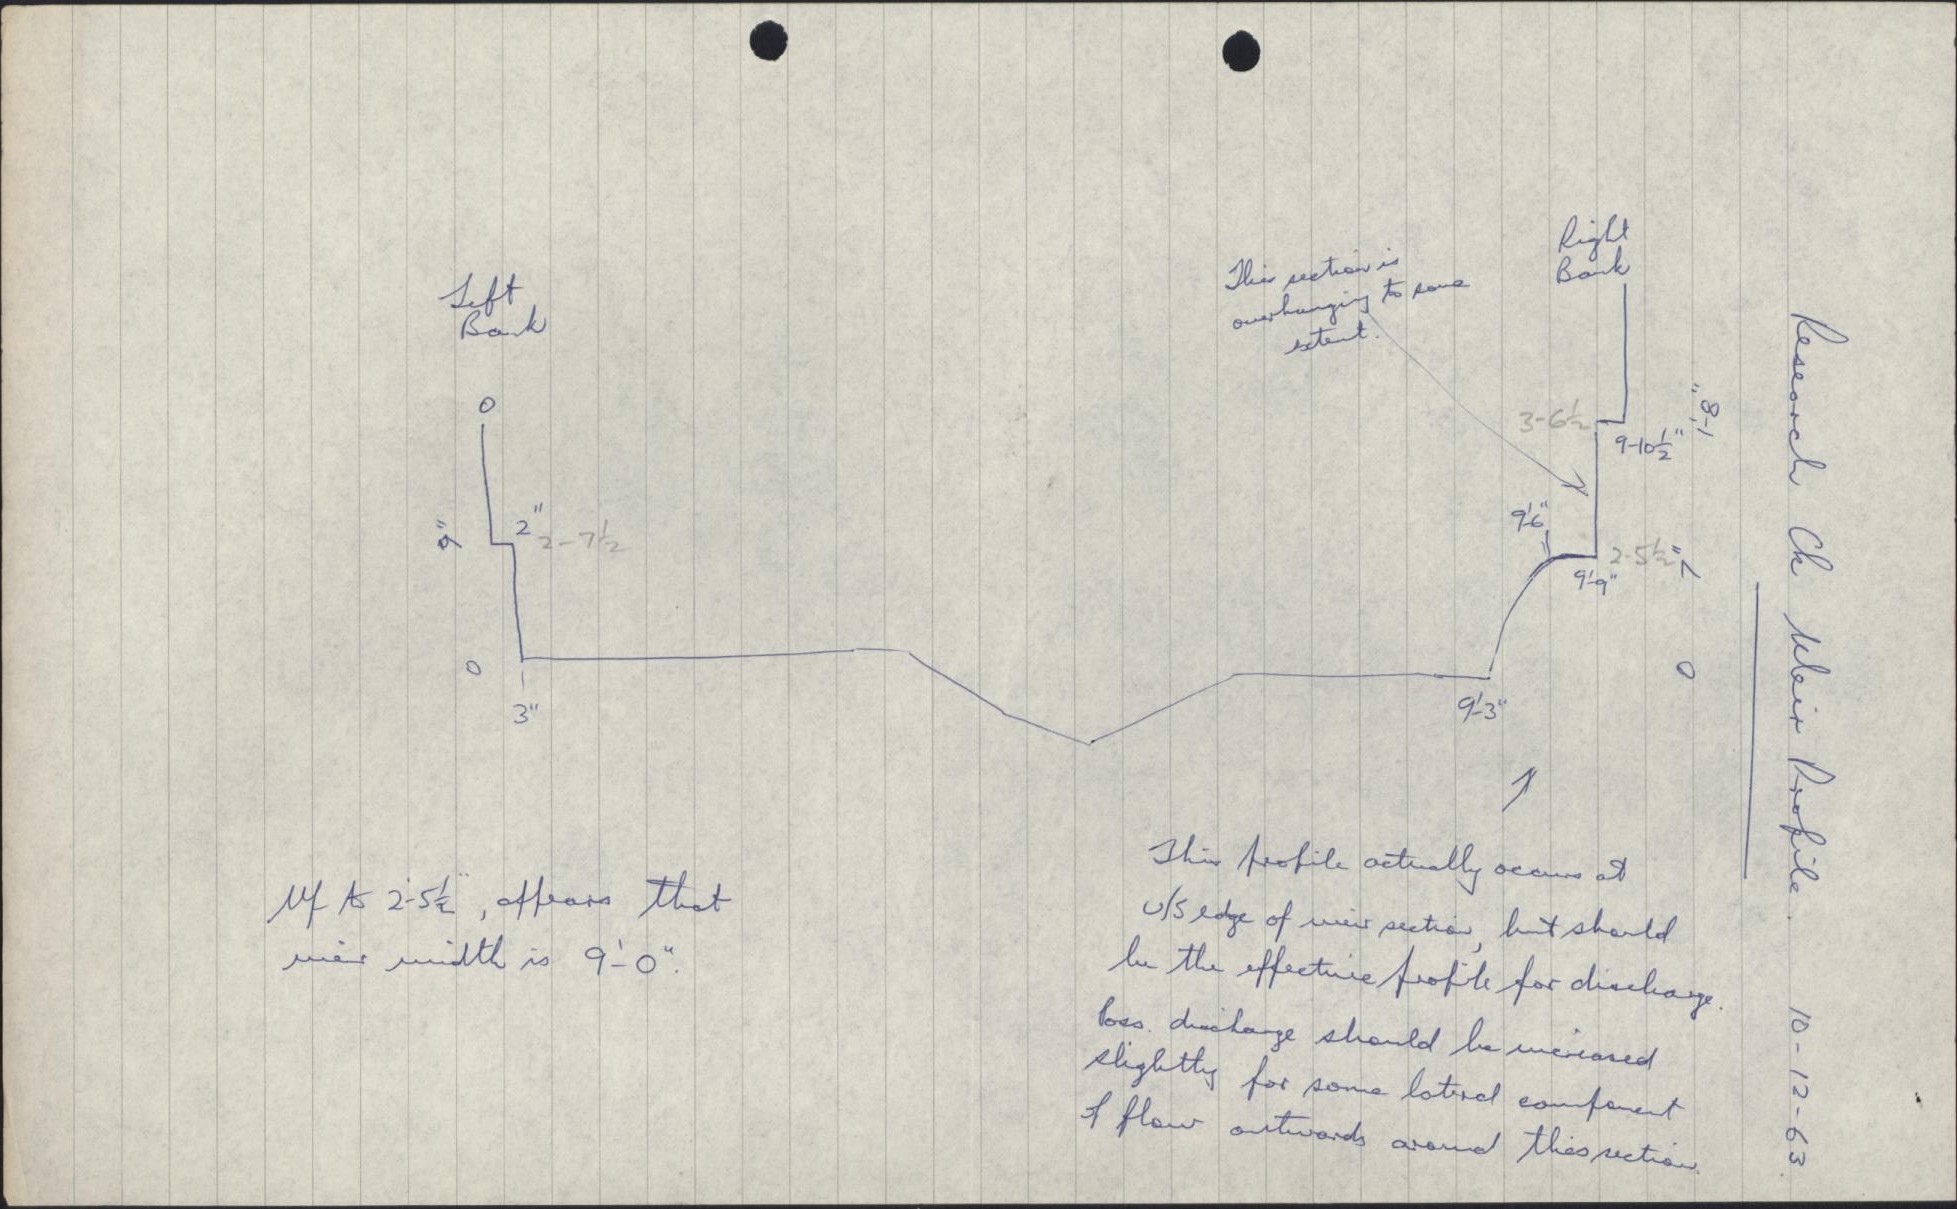 Research Ck Weir Profile. 10-12-63.
Right
Bank
This section is
overhanging to some
extent.
Left
Bank
0
1'-8"
3-6½
9-10½"
9'-6"
2"
2-7½
9"
2-5½"
7
9'-9"
0
0
3"
9'-3"
This profile actually occurs at
u/s edge of weir section, but should
be the effective profile for discharge.
Poss. discharge should be increased
slightly for some lateral component
of flow outwards around this section.
Up to 2'-5½", appears that
weir width is 9'-0".